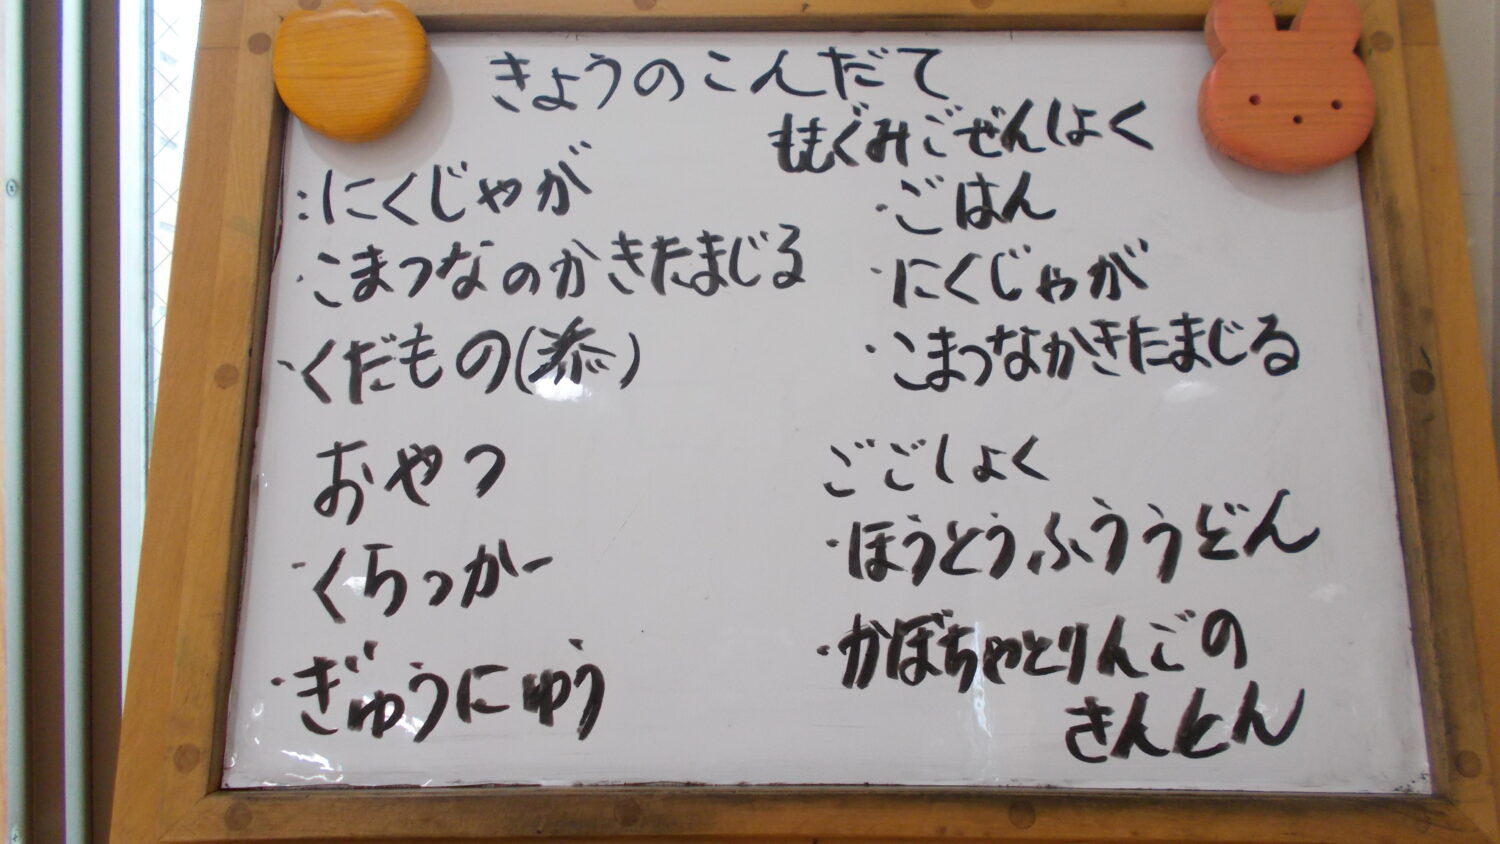 きょうのこんだて
・にくじゃが
・こまつなのかきたまじる
・くだもの( )
おやつ
・くらっかー
・ぎゅうにゅう
ももぐみごぜんしょく
・ごはん
・にくじゃが
・こまつなかきたまじる
ごごしょく
・ほうとうふううどん
・かぼちゃとりんごの
きんとん